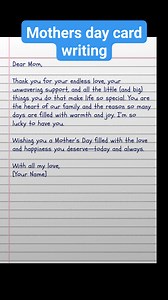 Mothers day card
writing
Dear Mom,
Thank you for your endless love, your
unwavering support, and all the little (and big)
things you do that make life so special. You are
the heart of our family and the reason so many
days are filled with warmth and joy. I'm so
lucky to have you.
Wishing you a Mother's Day filled with the love
and happiness you deserve—today and always.
With all my love,
[Your Name]